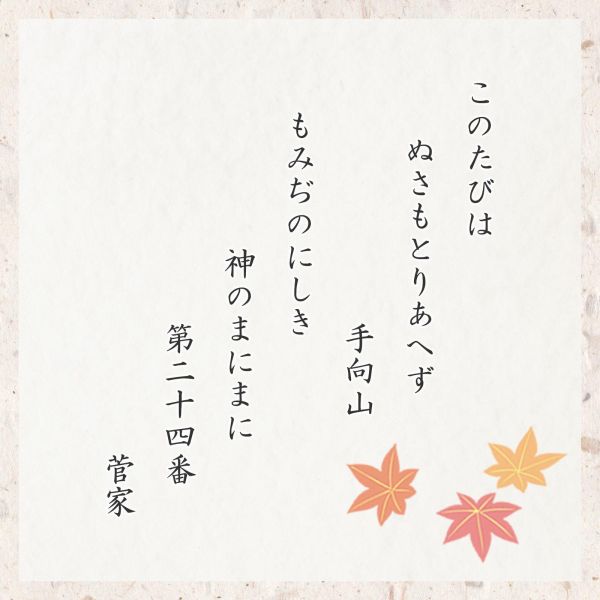 このたびは
ぬさもとりあへず
手向山
もみぢのにしき
神のまにまに
第二十四番
菅家